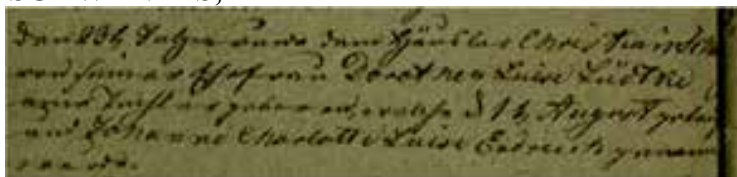 den 23t wurde dem Häusler Christian
von seiner Ehefrau Dorothea Luise Lüdtke
eine Tochter geboren, welche d 1t August getauft
und Johanne Charlotte Luise genannt
wurde.